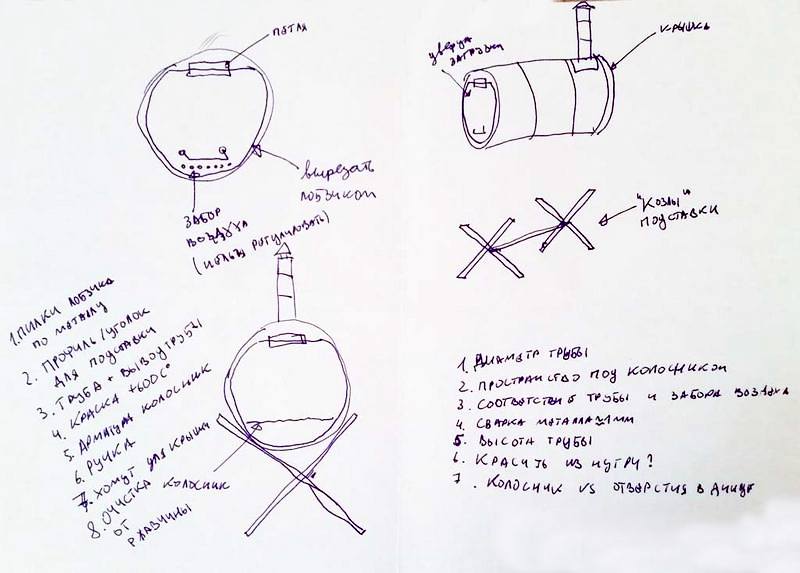 петля
вырезать
лобзиком
забор
воздуха
(нельзя регулировать)
1. пилки лобзика
по металлу
2. профиль/уголок
для подставки
3. труба + вывод трубы
4. краска +600С°
5. арматура колосник
6. ручка
7. хомут для крышки
8. очистка
от
ржавчины
колосник
дверца
загрузки
крышка
"козлы"
подставки
1. диаметр трубы
2. пространство под колосником
3. соответствие трубы и забора воздуха
4. сварка металла ≈1мм
5. высота трубы
6. красить изнутри?
7. колосник vs отверстия в днище